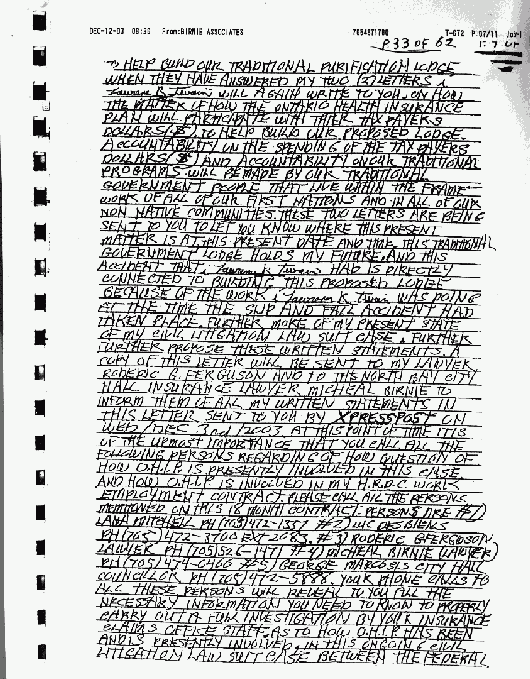 DEC-12-03 08:56 From:BIRNIE ASSOCIATES 7054971700 T-672 P.07/11
P33 OF 62
TO HELP BUILD OUR TRADITIONAL PURIFICATION LODGE
WHEN THEY HAVE ANSWERED MY TWO (2) LETTERS I
WILL AGAIN WRITE TO YOU ON HOW
THE MATTER OF HOW THE ONTARIO HEALTH INSURANCE
PLAN WILL PARTICIPATE WITH THEIR TAX PAYERS
DOLLARS ($) TO HELP BUILD OUR PROPOSED LODGE.
ACCOUNTABILITY ON THE SPENDING OF THE TAX PAYERS
DOLLARS ($) AND ACCOUNTABILITY ON OUR TRADITIONAL
PROGRAMS WILL BE MADE BY OUR TRADITIONAL
GOVERNMENT PEOPLE THAT LIVE WITHIN THE FRAME
WORK OF ALL OF OUR FIRST NATIONS AND IN ALL OF OUR
NON NATIVE COMMUNITIES. THESE TWO LETTERS ARE BEING
SENT TO YOU TO LET YOU KNOW WHERE THIS PRESENT
MATTER IS AT THIS PRESENT DATE AND TIME. THIS TRADITIONAL
GOVERNMENT LODGE HOLDS MY FUTURE, AND THIS
ACCIDENT THAT HAD IS DIRECTLY
CONNECTED TO BUILDING THIS PROPOSED LODGE
BECAUSE OF THE WORK I WAS DOING
AT THE TIME THE SLIP AND FALL ACCIDENT HAD
TAKEN PLACE. FURTHER MORE OF MY PRESENT STATE
OF MY CIVIL LITIGATION LAW SUIT CASE, I FURTHER
FURTHER PROPOSE THESE WRITTEN STATEMENTS. A
COPY OF THIS LETTER WILL BE SENT TO MY LAWYER
RODERIC G. FERGUSON AND TO THE NORTH BAY CITY
HALL INSURANCE LAWYER MICHEAL BIRNIE TO
INFORM THEM OF ALL MY WRITTEN STATEMENTS IN
THIS LETTER SENT TO YOU BY XPRESSPOST ON
WED/DEC 3rd/2003. AT THIS POINT OF TIME IT IS
OF THE UPMOST IMPORTANCE THAT YOU CALL ALL THE
FOLLOWING PERSONS REGARDING OF HOW QUESTION OF
HOW O.H.I.P IS PRESENTLY INVOLVED IN THIS CASE.
AND HOW O.H.I.P IS INVOLVED IN MY H.R.D.C WORK
EMPLOYMENT CONTRACT. PLEASE CALL ALL THE PERSONS
MENTIONED ON THIS 18 MONTH CONTRACT. PERSONS ARE #1)
LANA MITCHELL PH (705) 472-1337 #2) LUC DESGIENS
PH (705) 472-3700 EXT 2083. #3) RODERIC G FERGUSON
LAWYER PH (705) 526-1471 #4) MICHEAL BIRNIE LAWYER)
PH (705) 474-0400 #5) GEORGE MARCOSIS CITY HALL
COUNCILLOR PH (705) 472-5888. YOUR PHONE CALLS TO
ALL THESE PERSONS WILL REVEAL TO YOU ALL THE
NECESSARY INFORMATION YOU NEED TO KNOW TO PROPERLY
CARRY OUT A FULL INVESTIGATION BY YOUR INSURANCE
CLAIMS OFFICE STAFF, AS TO HOW O.H.I.P HAS BEEN
AND IS PRESENTLY INVOLVED IN THIS ONGOING CIVIL
LITIGATION LAW SUIT CASE BETWEEN THE FEDERAL